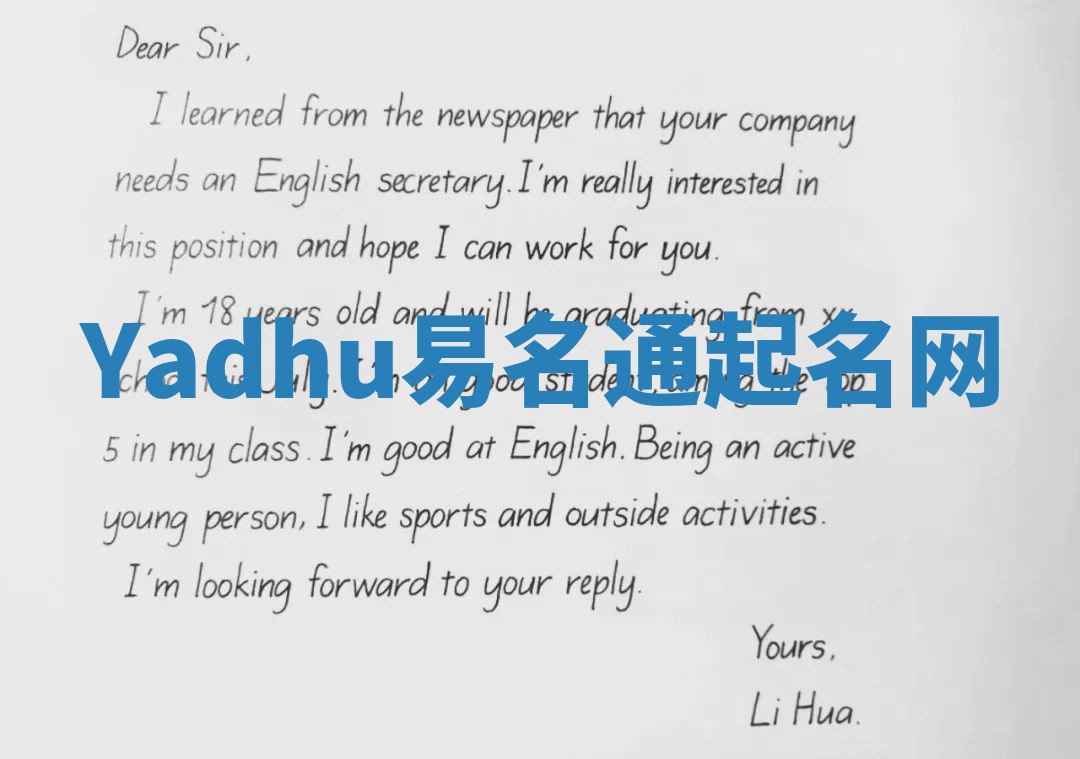 Dear Sir,
I learned from the newspaper that your company
needs an English secretary. I'm really interested in
this position and hope I can work for you.
I'm 18 years old and will be graduating from xx
Yadhu易名通起名网
this July. I'm student, among the top
5 in my class. I'm good at English. Being an active
young person, I like sports and outside activities.
I'm looking forward to your reply.
Yours,
Li Hua.